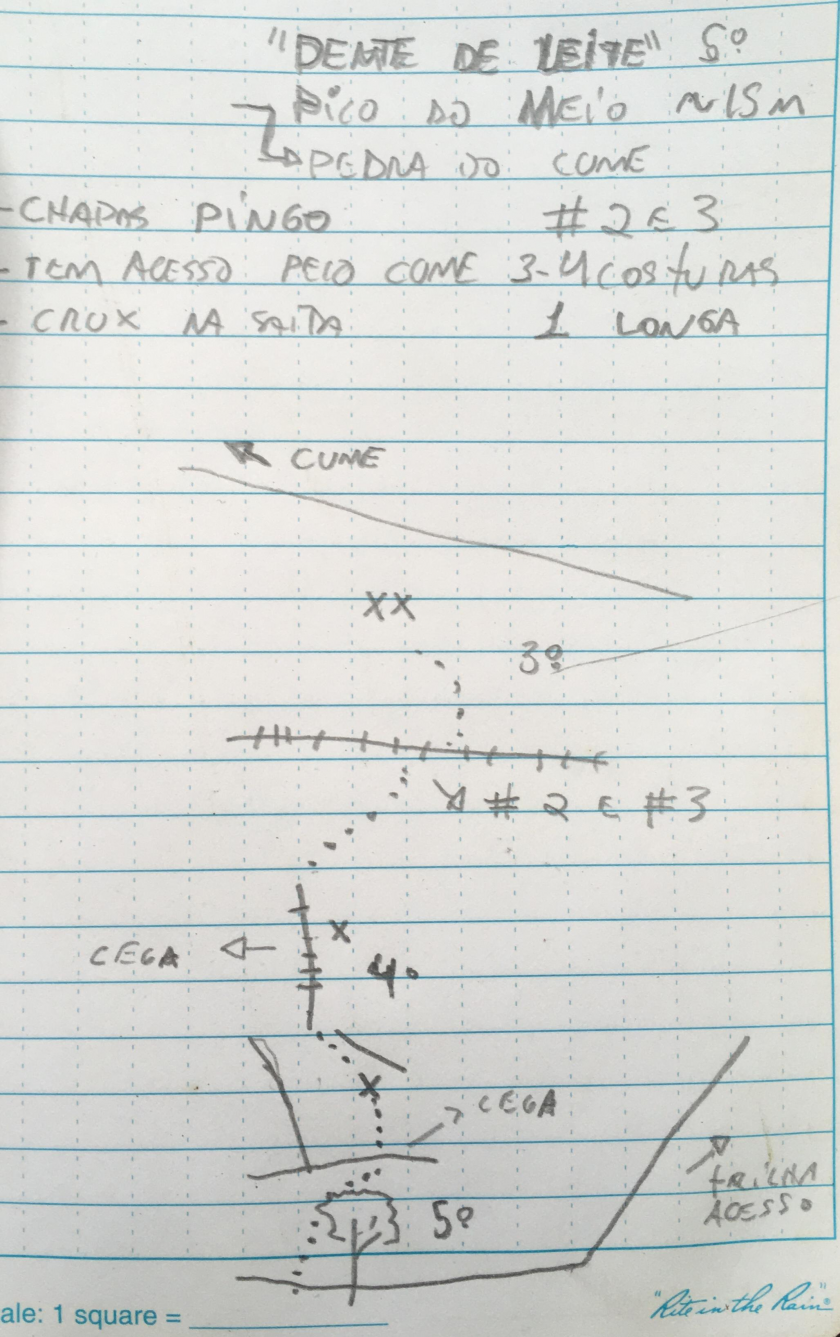 "DENTE DE LEITE" 5º
PICO DO MEIO ~15M
PEDRA DO CUME
- CHAPAS PINGO # 2 E 3
- TEM ACESSO PELO CUME 3-4 COSTURAS
- CRUX NA SAÍDA 1 LONGA
CUME
XX
3º
# 2 E #3
X
CEGA
4º
X
CEGA
TRILHA
ACESSO
5º
ale: 1 square =
"Rite in the Rain"®